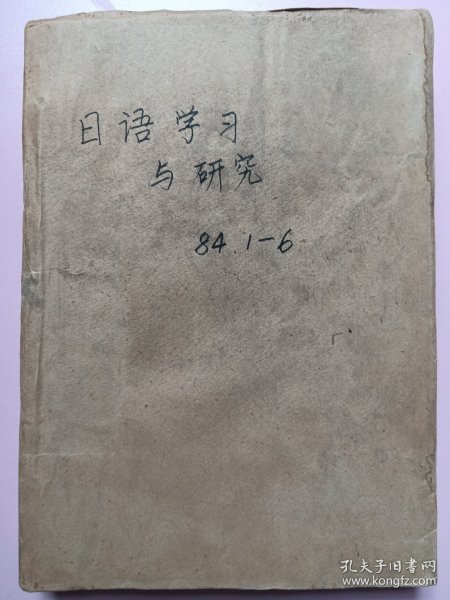 日语学习
与研究
84.1-6
孔夫子旧书网
www.kongfz.com